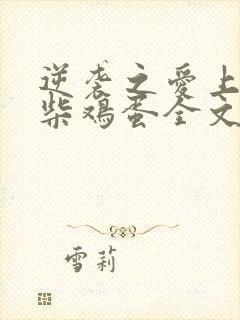 逆袭之爱上
柴鸡蛋全文
雪莉